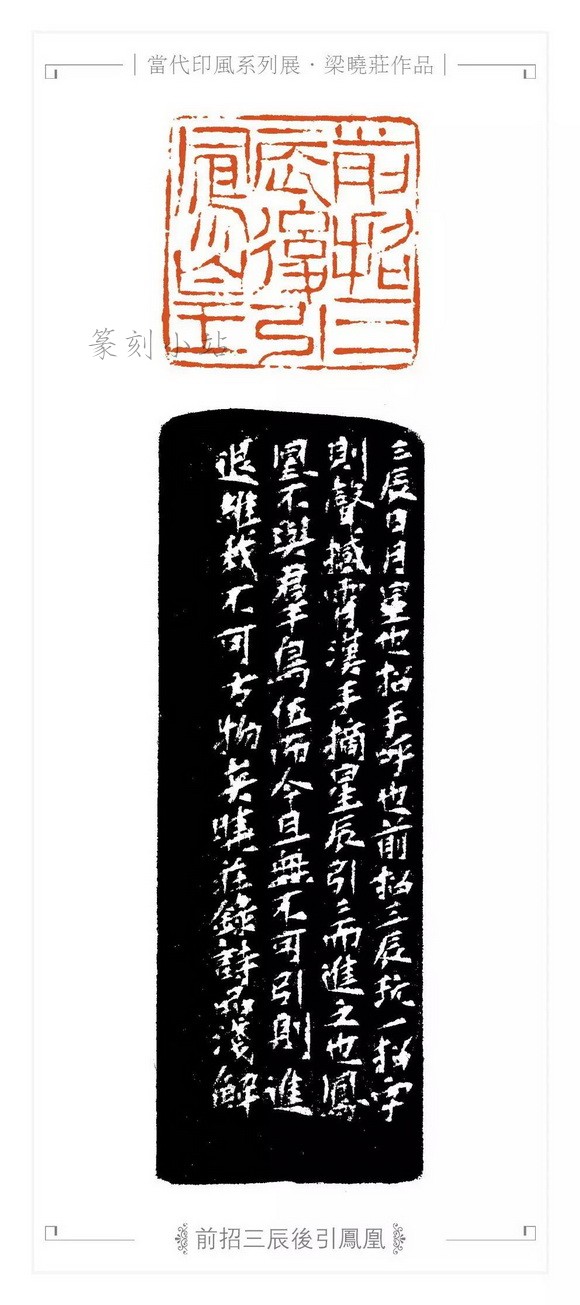 當代印風系列展·梁曉莊作品
前招三
辰後引
鳳皇
篆刻小站
三辰日月星也招手呼也前招三辰玩一招字
則聲撼霄漢手摘星辰引三而進之也鳳
凰不與羣鳥伍而今且無不可引則進
退維我不可方物矣曉莊錄詩品淺解
前招三辰後引鳳凰